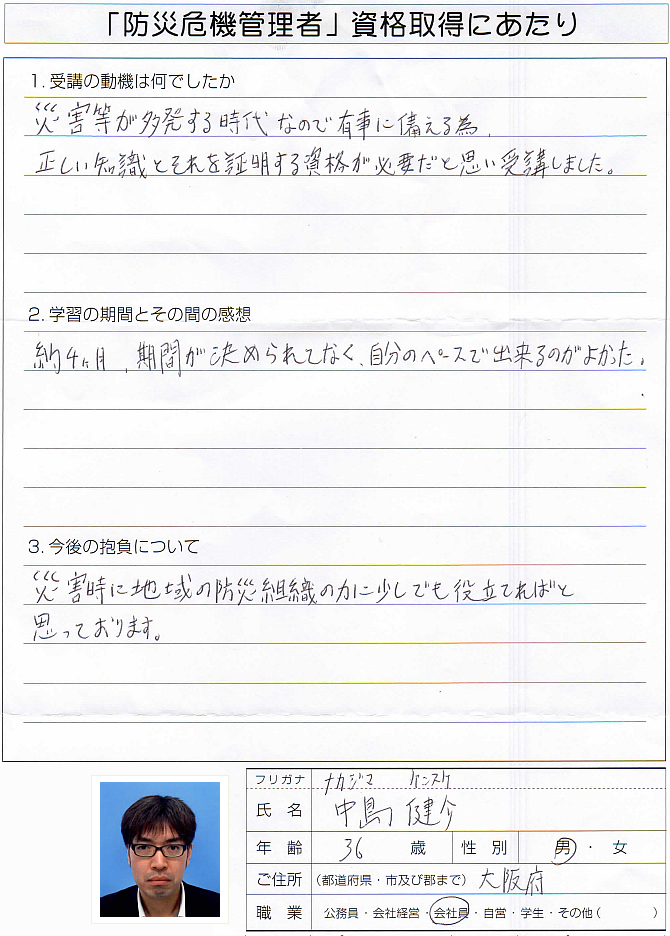 「防災危機管理者」資格取得にあたり
1. 受講の動機は何でしたか
災害等が多発する時代なので有事に備える為、
正しい知識とそれを証明する資格が必要だと思い受講しました。
2. 学習の期間とその間の感想
約4ヶ月、期間が決められてなく、自分のペースで出来るのがよかった。
3. 今後の抱負について
災害時に地域の防災組織の力に少しでも役立てればと
思っております。
フリガナ ナカジマ ケンスケ
氏名 中島 健介
年齢 36 歳 性別 男・女
ご住所 (都道府県・市及び郡まで) 大阪府
職業 公務員・会社経営・会社員・自営・学生・その他( )